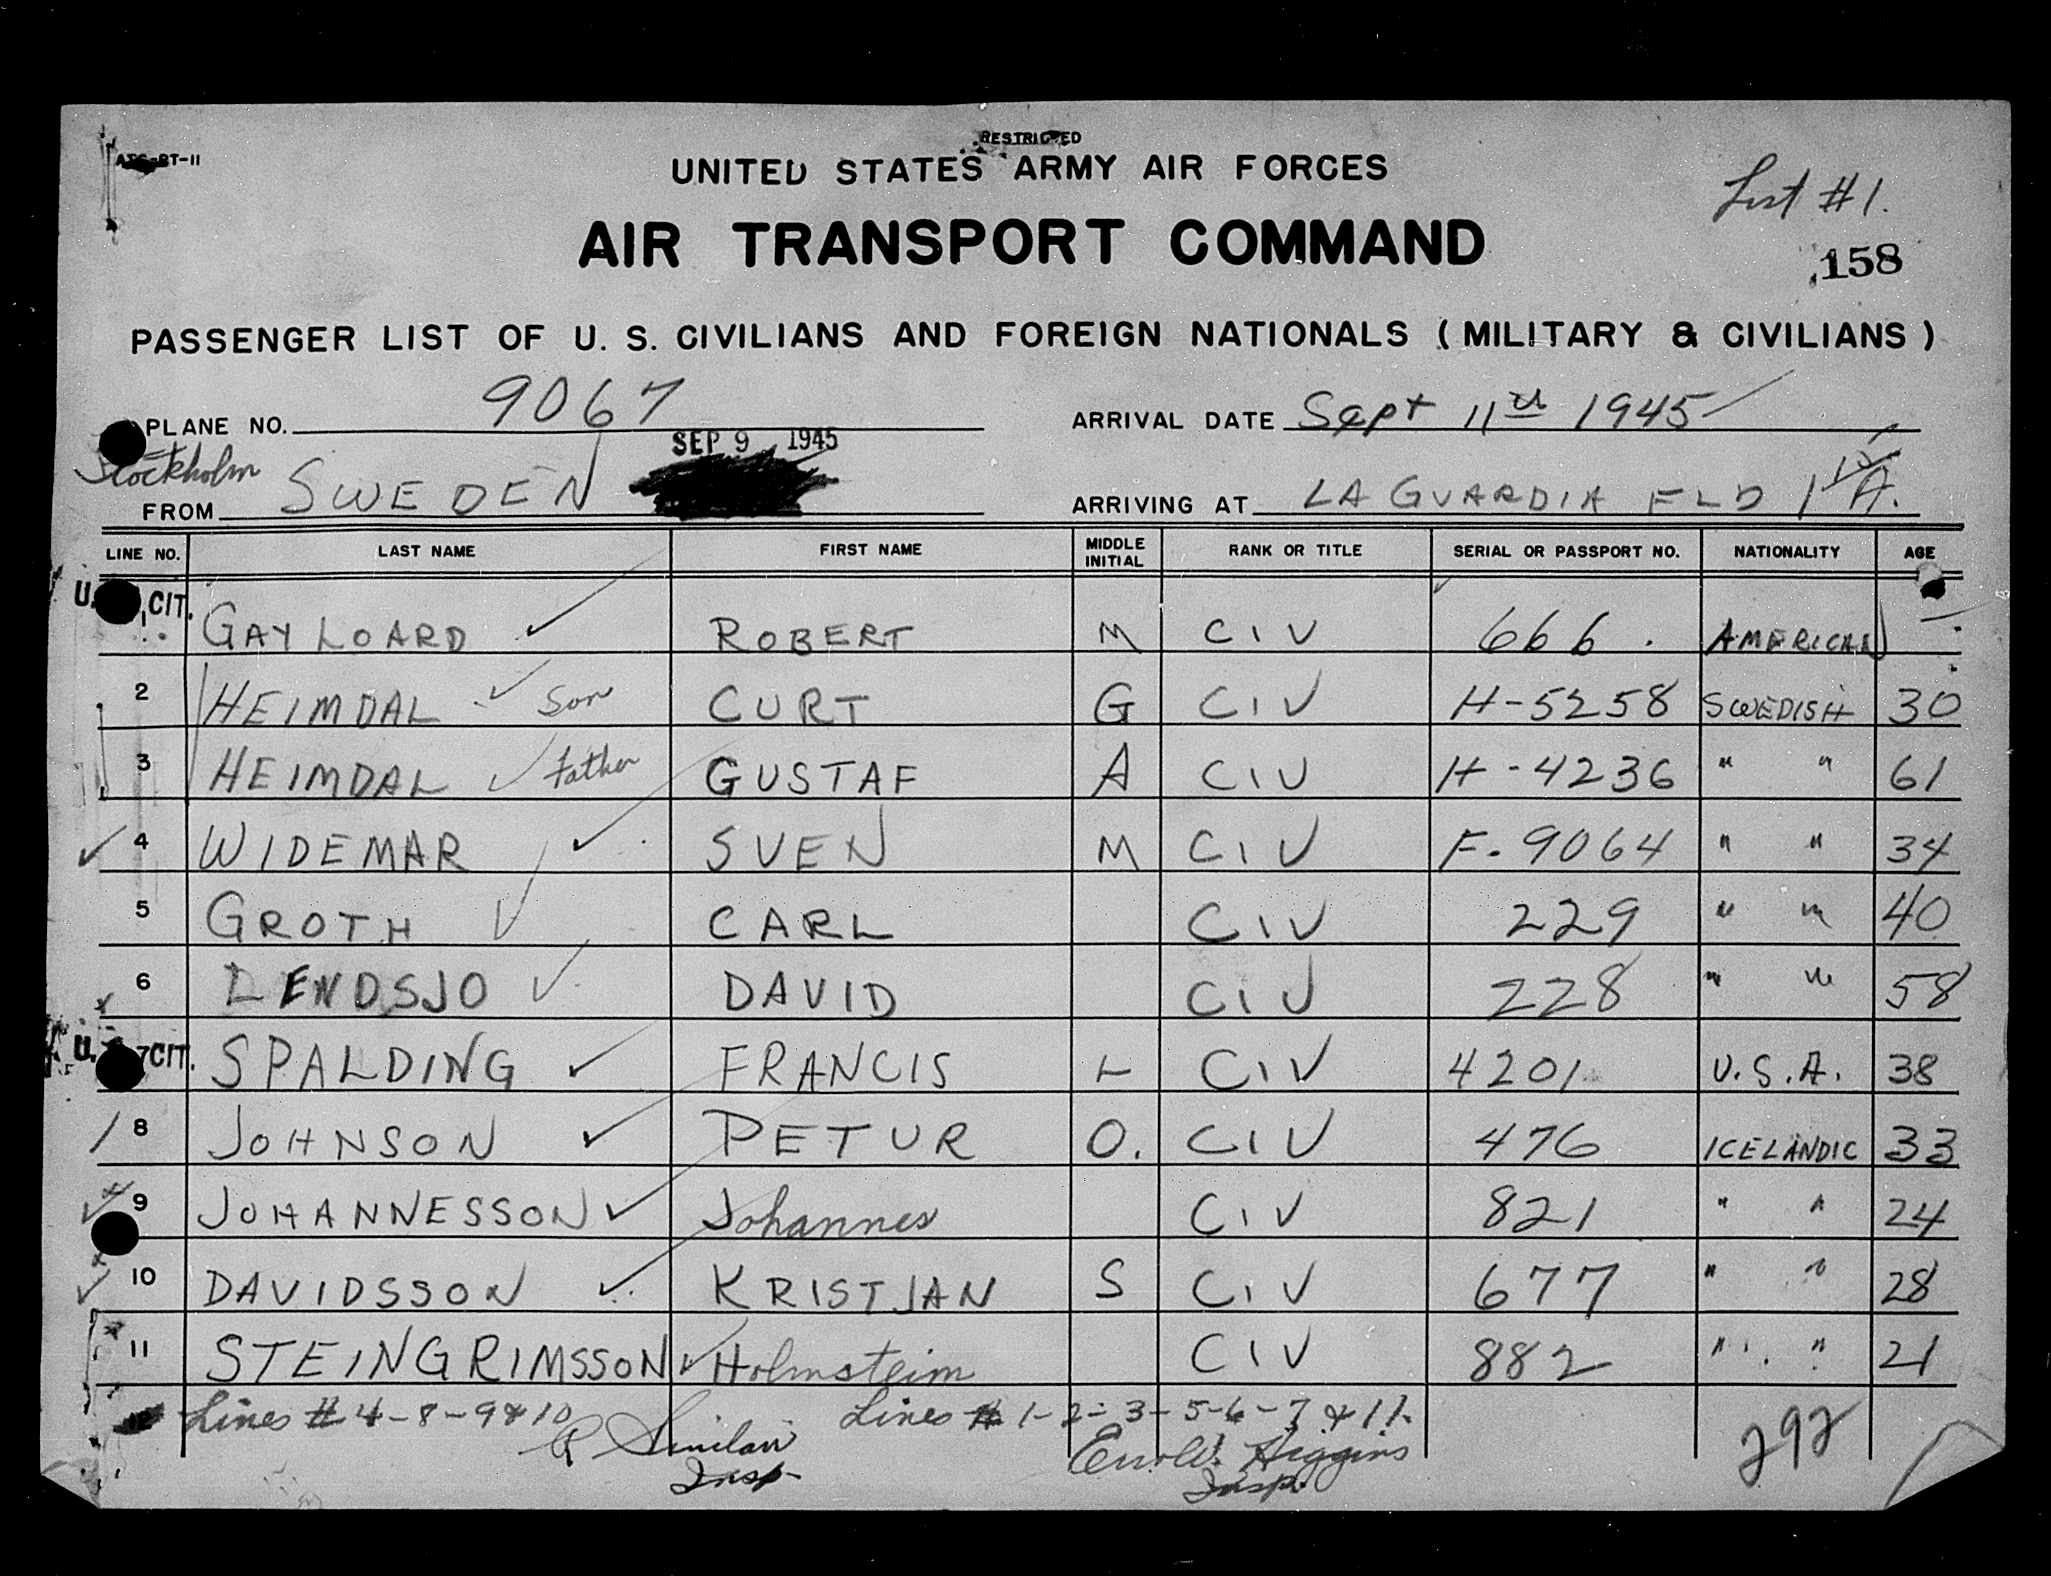 RESTRICTED
ATC-PT-11
UNITED STATES ARMY AIR FORCES
List #1.
AIR TRANSPORT COMMAND
158
PASSENGER LIST OF U. S. CIVILIANS AND FOREIGN NATIONALS (MILITARY & CIVILIANS)
PLANE NO. 9067 ARRIVAL DATE Sept 11th 1945
SEP 9 1945
Stockholm
FROM SWEDEN ARRIVING AT LA GUARDIA FLD
LINE NO. LAST NAME FIRST NAME MIDDLE INITIAL RANK OR TITLE SERIAL OR PASSPORT NO. NATIONALITY AGE
U. CIT. 1 GAYLOARD ROBERT M CIV 666. AMERICAN —
2 HEIMDAL Son CURT G CIV H-5258 SWEDISH 30
3 HEIMDAL Father GUSTAF A CIV H-4236 " " 61
4 WIDEMAR SVEN M CIV F-9064 " " 34
5 GROTH CARL CIV 229 " " 40
6 LENDSJO DAVID CIV 228 " " 58
U. 7 CIT. SPALDING FRANCIS L CIV 4201 U.S.A. 38
8 JOHNSON PETUR O. CIV 476 ICELANDIC 33
9 JOHANNESSON Johannes CIV 821 " " 24
10 DAVIDSSON KRISTJAN S CIV 677 " " 28
11 STEINGRIMSSON Holmsteim CIV 882 " " 21
12 Lines # 4-8-9 & 10 Lines # 1-2-3-5-6-7 & 11.
R Sinclair Errol W. Higgins 292
Insp. Insp.